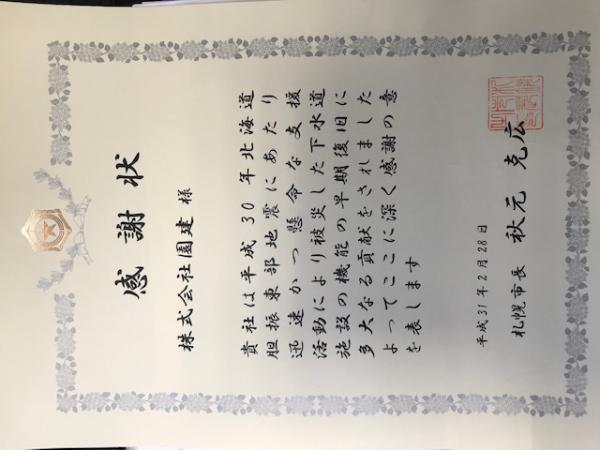 感謝状
株式会社園建 様
貴社は平成30年北海道
胆振東部地震にあたり
迅速かつ懸命な支援
活動により被災した下水道
施設の機能の早期復旧に
多大なる貢献をされました
よってここに深く感謝の意
を表します
平成31年2月28日
札幌市長 秋元克広